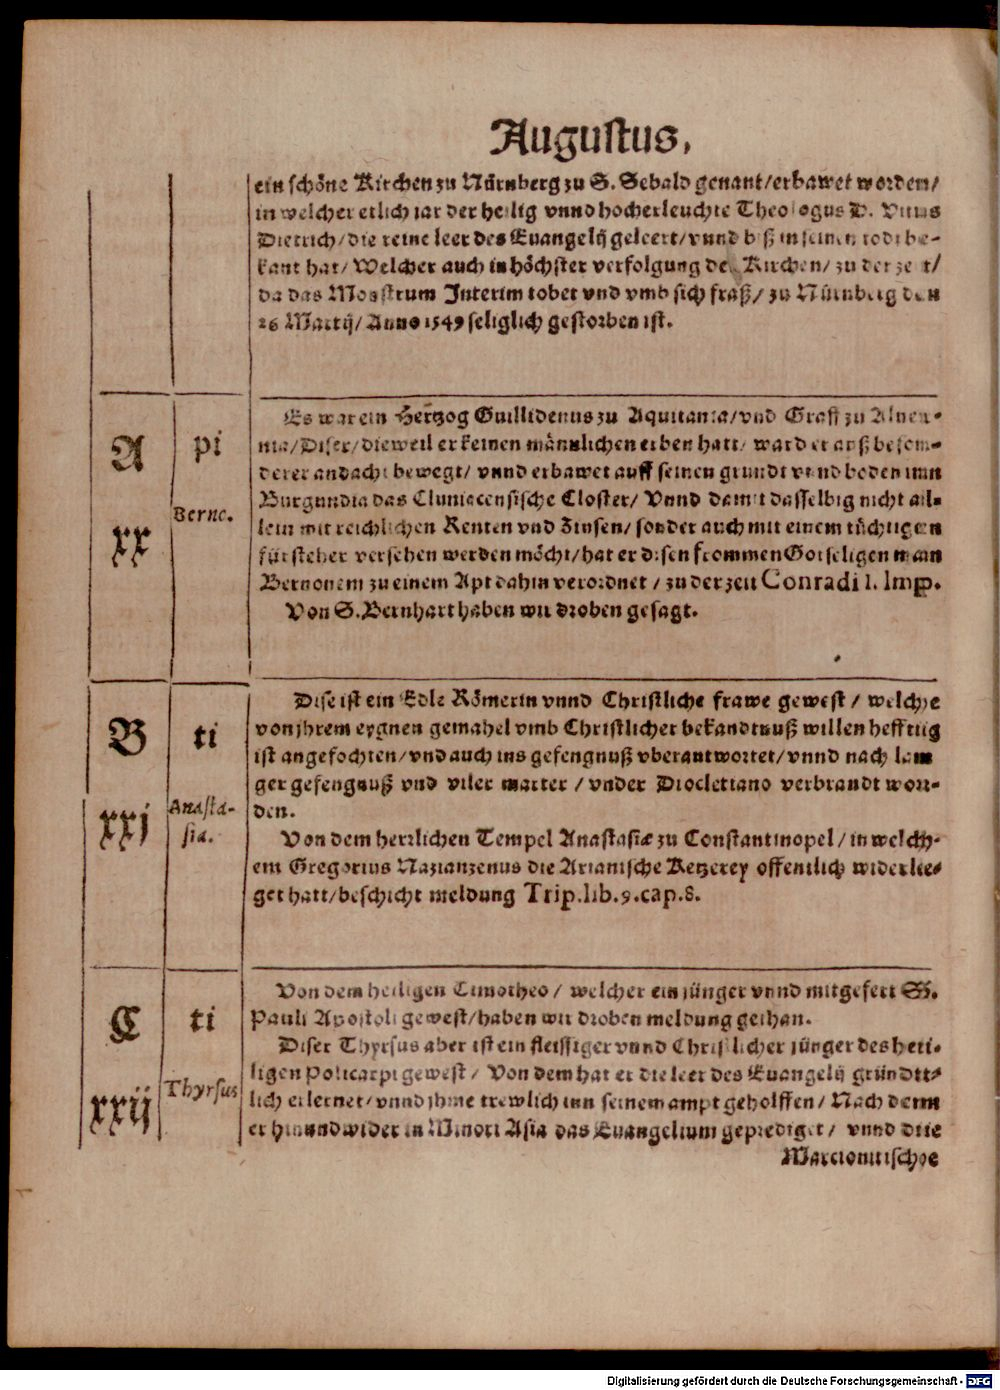 Augustus,
ein schöne Kirchen zu Nürnberg zu S. Sebald genant/erbawet worden/
in welcher etlich jar der heilig vnnd hocherleuchte Theologus D. Vitus
Dietrich/die reine leer des Euangelij geleert/vnnd biß in seinen todt be-
kant hat/Welcher auch in höchster verfolgung der Kirchen/zu der zeit/
da das Monstrum Interim tobet vnd vmb sich fraß/zu Nürnberg den
26 Martij/Anno 1549 seliglich gestorben ist.
Es war ein Hertzog Guillidenus zu Aquitania/vnd Graff zu Aluer-
A
pi
nia/Diser/dieweil er keinen mänlichen erben hatt/ward er auß beson-
derer andacht bewegt/vnnd erbawet auff seinen grundt vnnd boden inn
Burgundia das Cluniacensische Closter/Vnnd damit dasselbig nicht al-
Berno.
lein mit reichlichen Renten vnd Zinsen/sonder auch mit einem tüchtigen
xx
fürsteher versehen werden möcht/hat er disen frommen Gotseligen mann
Bernonem zu einem Apt dahin verordnet/zu der zeit Conradi I. Imp.
Von S. Bernhart haben wir droben gesagt.
Dise ist ein Edle Römerin vnnd Christliche frawe gewest/welche
B
ti
von jhrem eygnen gemahel vmb Christlicher bekandtnuß willen hefftig
ist angefochten/vnd auch ins gefengnuß vberantwortet/vnnd nach lan
ger gefengnuß vnd viler marter/vnder Diocletiano verbrandt wor-
Anasta-
den.
xxj
sia.
Von dem herrlichen Tempel Anastasiæ zu Constantinopel/in welch-
em Gregorius Nazianzenus die Arianische Ketzerey offentlich widerle-
get hatt/beschicht meldung Trip.lib.9.cap.8.
Von dem heiligen Timotheo/welcher ein jünger vnnd mitgefert S.
C
ti
Pauli Apostoli gewest/haben wir droben meldung gethan.
Diser Thyrsus aber ist ein fleissiger vnnd Christlicher jünger des heili-
ligen Policarpi gewest/Von dem hat er die leer des Euangelij gründt-
Thyrsus
lich erlernet/vnnd jhme trewlich inn seinem ampt geholffen/Nach dem
xxij
er hin und wider in Minori Asia das Euangelium geprediget/vnnd die
Marcionitische
Digitalisierung gefördert durch die Deutsche Forschungsgemeinschaft - DFG